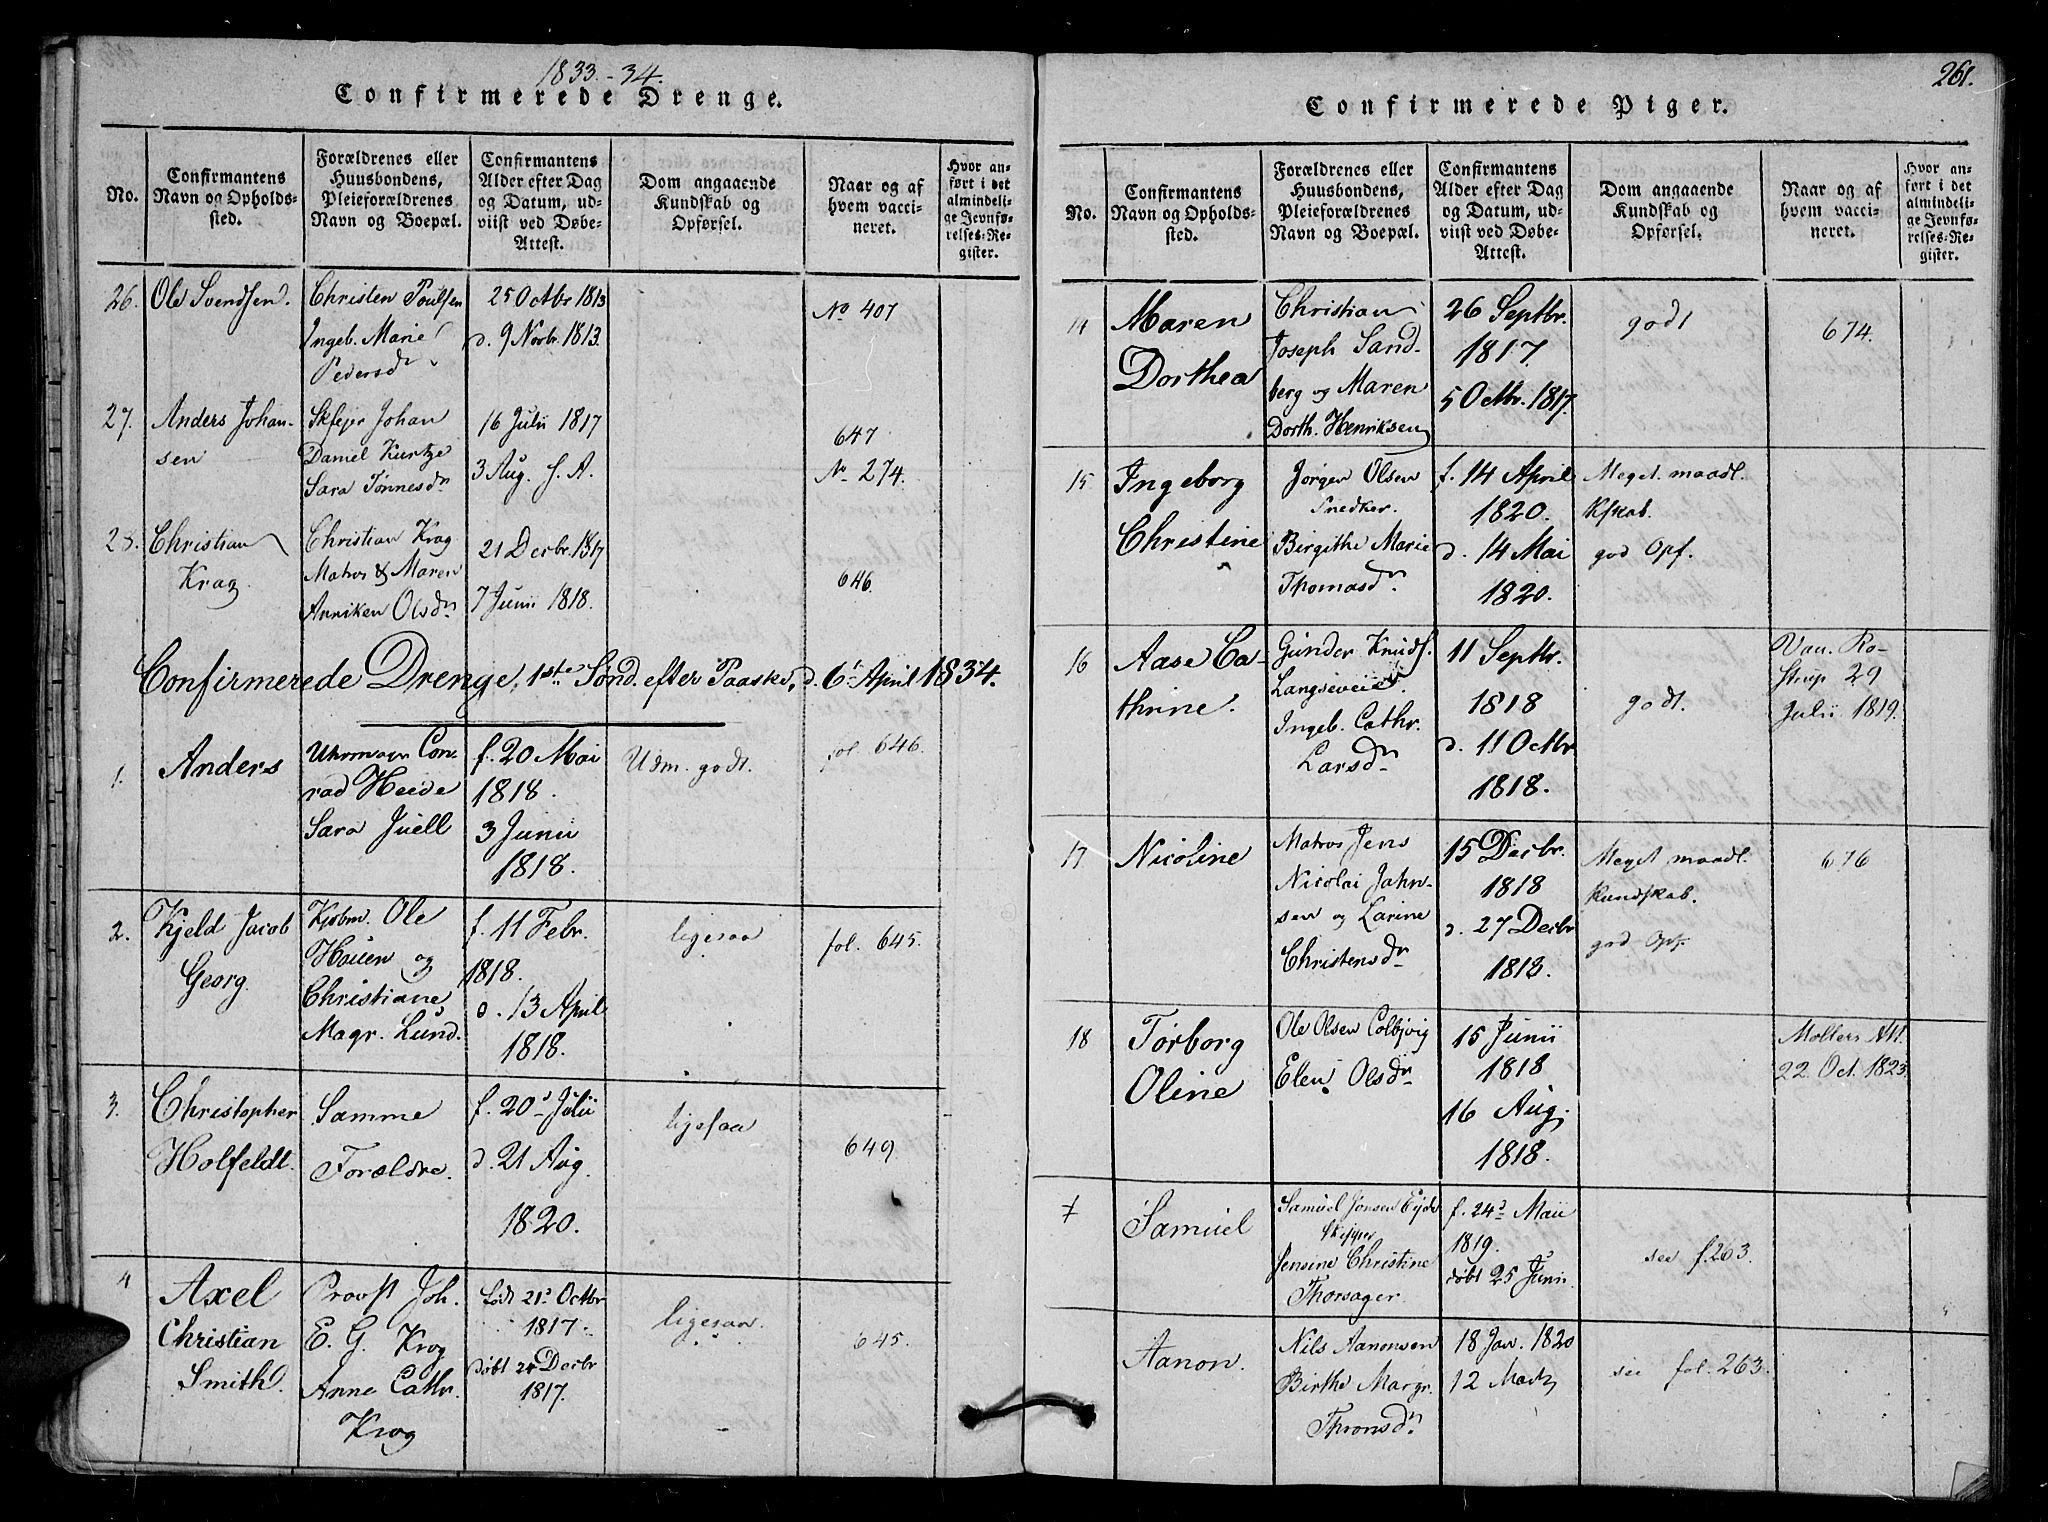 1833.-34.
Confirmerede Drenge.
No.
Confirmantens
Navn og Opholds-
sted.
Forældrenes eller
Huusbondens,
Pleieforældrenes
Navn og Boepæl.
Confirmantens
Alder efter Dag
og Datum, ud-
viist ved Døbe-
Attest.
Dom angaaende
Kundskab og
Opførsel.
Naar og af
hvem vacci-
neret.
Hvor an-
ført i det
almindeli-
ge Jevnfø-
relses-Re-
gister.
26.
Ole Svendsen.
Christen Poulsen
Ingeb. Marie
Pedersdr
25 Octbr 1813
d. 9 Novbr. 1813.
No 407
27.
Anders Johan-
sen
Skfejer Johan
Daniel Kurtze
Sara Tønnesdr
16 Julii 1817
3 Aug. s. A.
647
No 274.
28.
Christian
Krag
Christian Krag
Matros & Maren
Anniken Olsdr
21 Decbr. 1817
7 Junii 1818.
646.
Confirmerede Drenge, 1ste Sønd. efter Paaske, d. 6t April 1834.
1.
Anders
Uhrmager Con-
rad Heide
Sara Juell
f. 20 Mai
1818.
3 Junii
1818.
Udm. godt.
fol. 646.
2.
Kjeld Jacob
Georg
Kjøbm. Ole
Haüen og
Christiane
Magr. Lund.
f. 11 Febr.
1818.
d. 13 April
1818.
ligesaa
fol. 645.
3.
Christopher
Holfeldt.
Samme
Forældre.
f. 20d Julii
d. 21 Aug.
1820.
ligesaa
649.
4
Axel
Christian
Smith.
Provst Joh.
E. G. Krog
Anne Cathr.
Krog
født 21d Octbr
1817.
døbt 24 Decbr
1817.
ligesaa.
645.
261.
Confirmerede Piger.
No.
Confirmantens
Navn og Opholds-
sted.
Forældrenes eller
Huusbondens,
Pleieforældrenes
Navn og Boepæl.
Confirmantens
Alder efter Dag
og Datum, ud-
viist ved Døbe-
Attest.
Dom angaaende
Kundskab og
Opførsel.
Naar og af
hvem vacci-
neret.
Hvor an-
ført i det
almindeli-
ge Jevnfø-
relses-Re-
gister.
14
Maren
Dorthea
Christian
Joseph Sand-
berg og Maren
Dorth. Henriksen
26 Septbr.
1817.
5 Octbr. 1817.
godt
674.
15
Ingeborg
Christine
Jørgen Olsen
Snedker.
Birgithe Marie
Thomasdr.
f. 14 April
1820.
d. 14 Mai
1820.
Meget maadl.
Kskab.
god Opf.
16
Aase Ca-
thrine.
Gunder Knuds.
Langseveie.
Ingeb. Cathr.
Larsdr
11 Septbr.
1818
d. 11 Octbr
1818.
godt.
Vau. Ro-
strup 29
Julii 1819.
17
Nicoline
Matros Jens
Nicolai Jahn-
sen og Larine
Christensdr
15 Decbr.
1818
d. 27 Decbr
1818.
Meget maadl.
Kundskab.
god Opf.
676
18
Torborg
Oline
Ole Olsen Colbjvig
Elen Olsdr
15 Junii
1818
16 Aug.
1818.
Møllers Att.
22. Oct. 1823.
Samüel
Samüel Jensen Eyde
Skipper
Jensine Christine
Thorsager.
f. 24d Maii
1819.
døbt 25 Junii
see f. 263.
Aanon.
Nils Aanonsen
Birthe Margr.
Thronsdr.
18 Jan. 1820
12 Marts
see fol. 263.